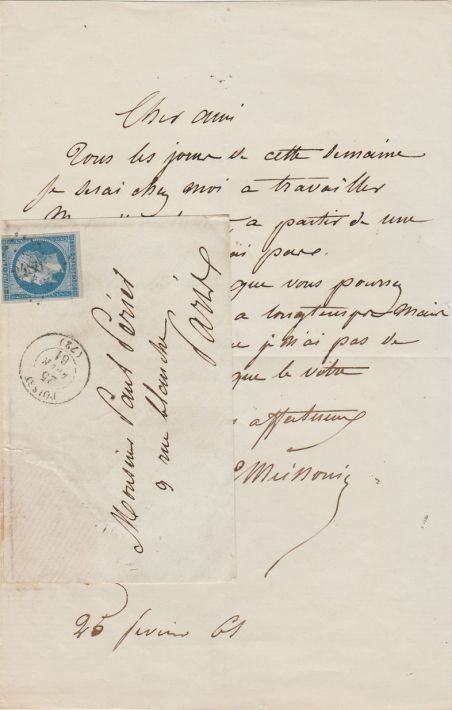 Cher ami
Tous les jours de cette semaine
je serai chez moi a travailler
a partir de une
pas.
que vous pourrez
a longtemps. Mais
je n'ai pas de
que le votre
affectueux
EMeissonier
25 fevrier 61
Monsieur Paul Periès
9 rue blanche
Paris
POISSY
25
61
(72)